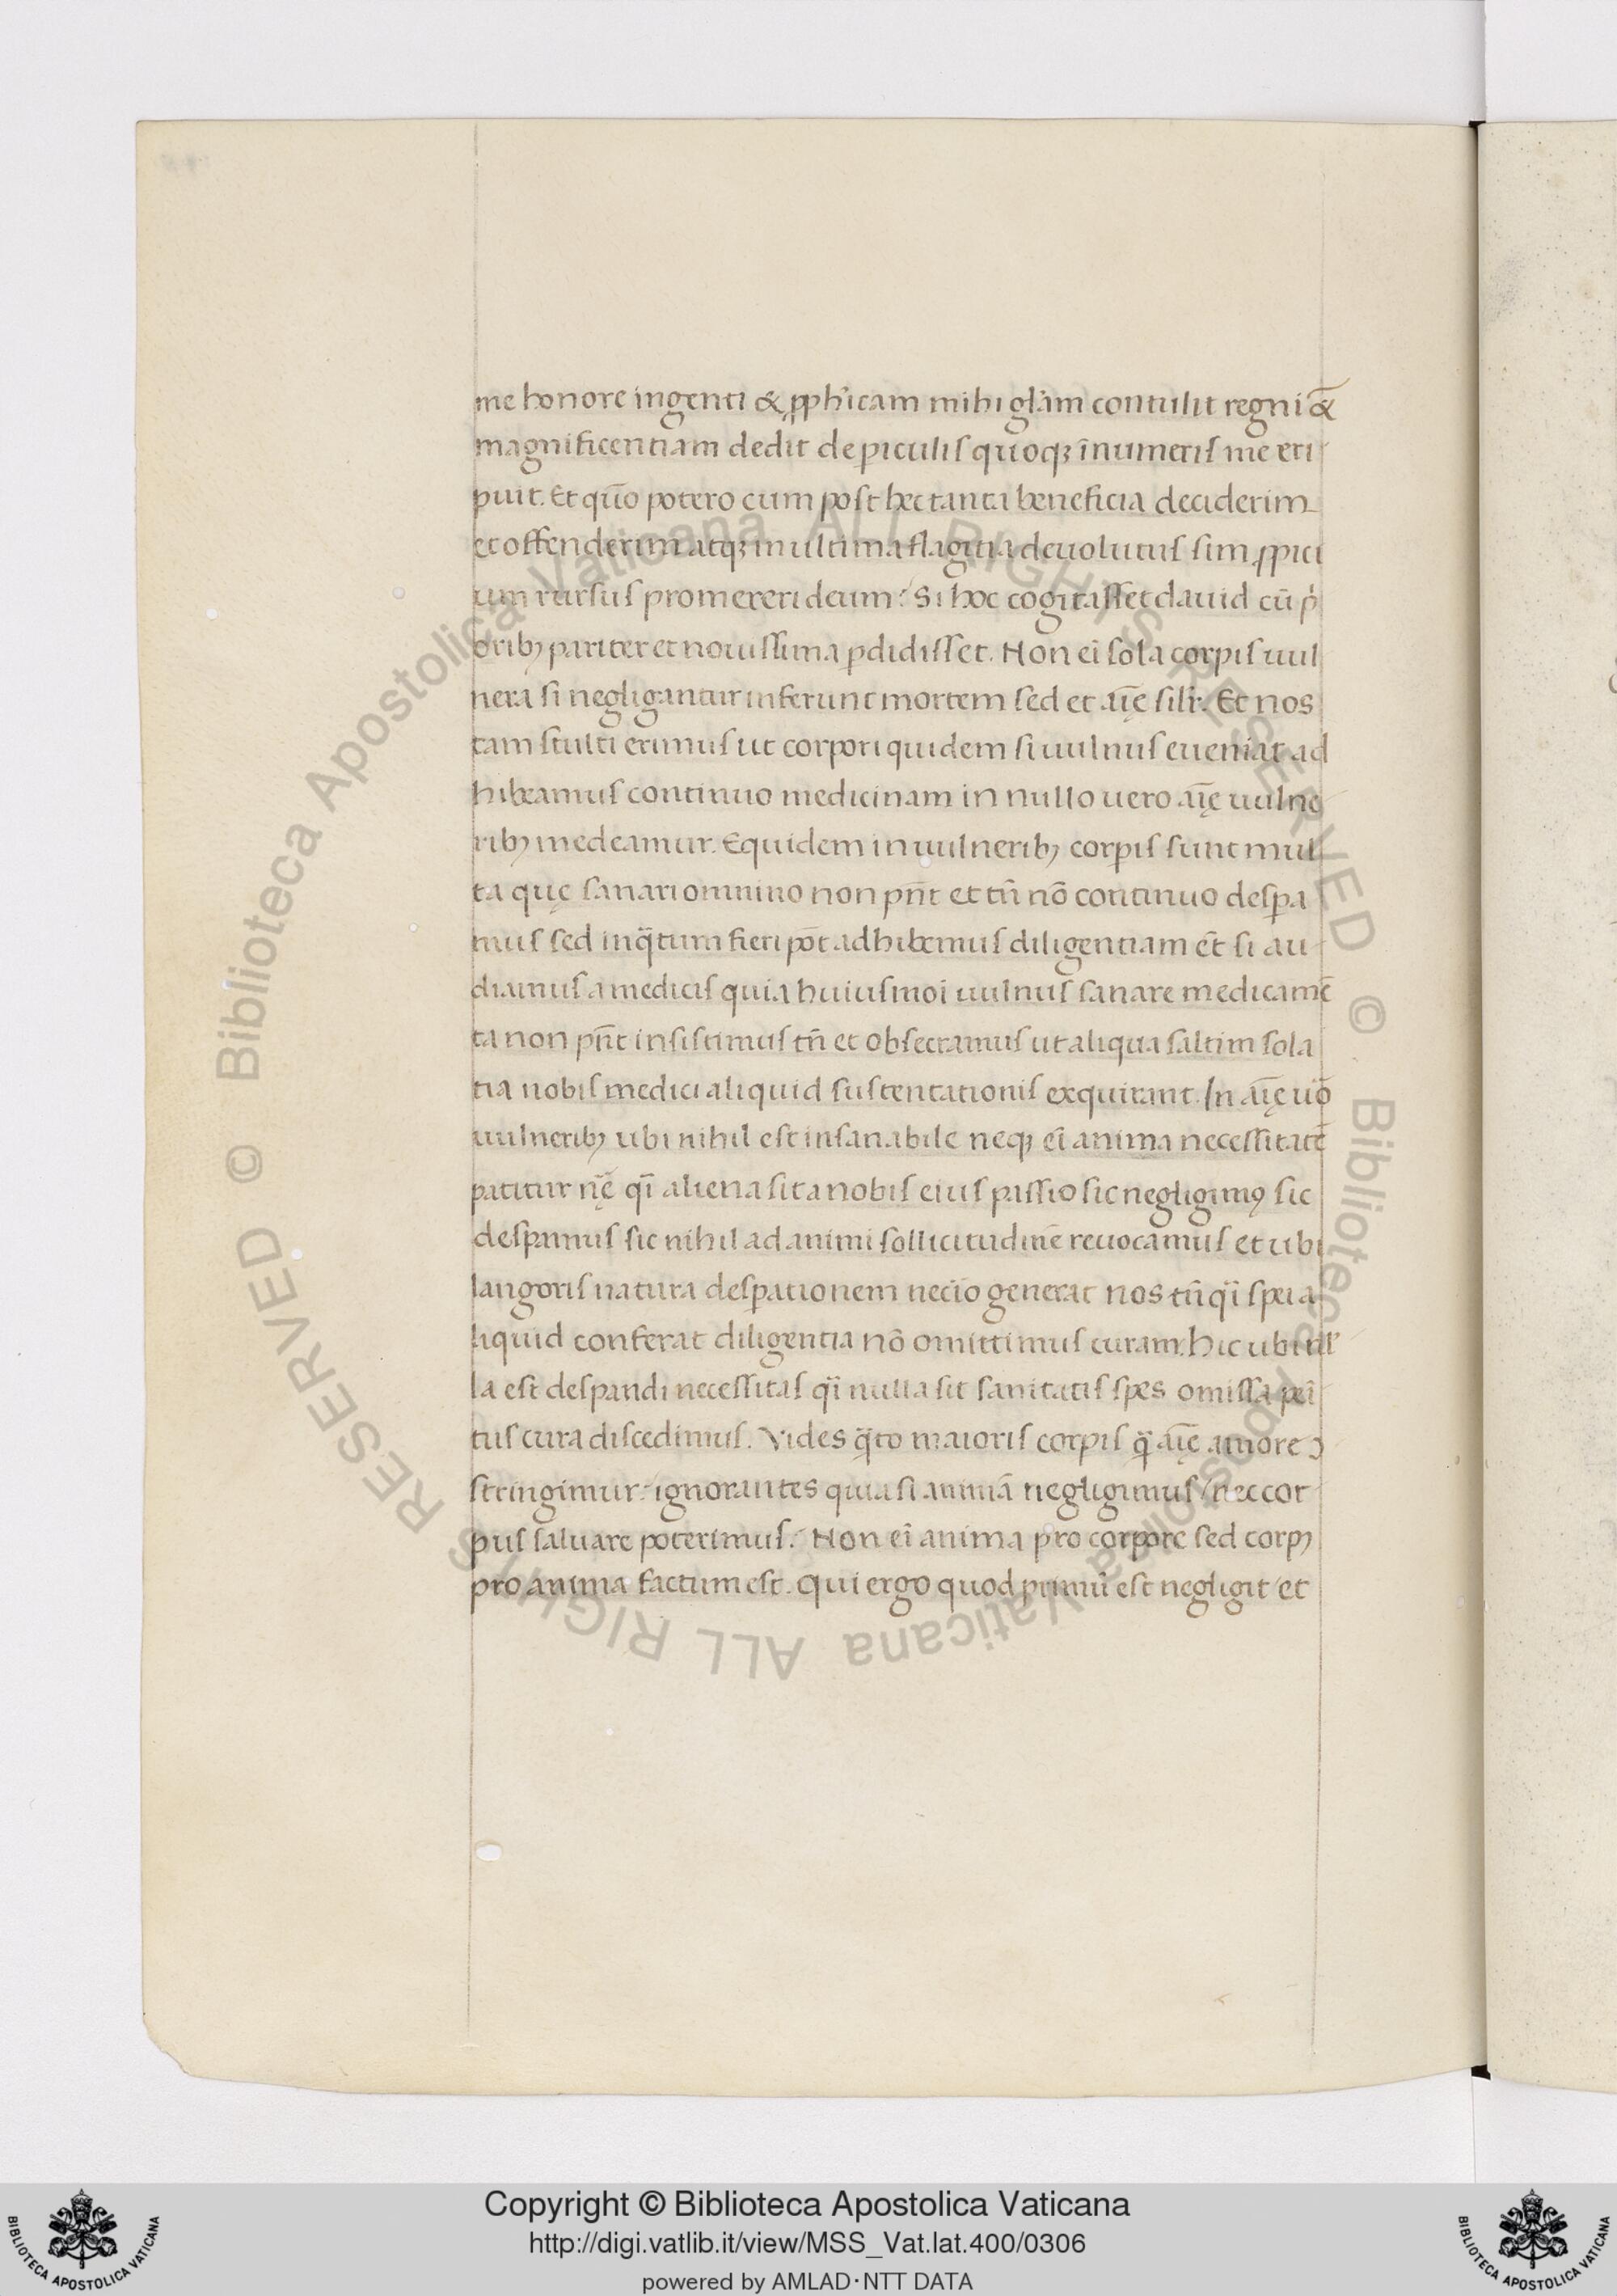 me honore ingenti & ꝓph'icam mihi gl'am contulit regni &̄
magnificentiam dedit de ꝑiculis quoqꝫ īnumeris me eri
puit. Et quō potero cum post hec tanta beneficia deciderim
et offenderim atqꝫ in ultima flagitia deuolutus sim ꝓpici
um rursus promereri deum? Si hoc cogitasset dauid cū p'
oribꝫ pariter et nouissima ꝑdidisset. Non ei̅ sola corꝑis uul
nera si negligantur inferunt mortem sed et aīę sil'r. Et nos
tam stulti erimus ut corpori quidem si uulnus eueniat ad
hibeamus continuo medicinam in nullo uero aīę uulne
ribꝫ medeamur. Equidem in uulneribꝫ corꝑis sunt mul
ta quę sanari omnino non pn̄t et tn̄ nō continuo desꝑa
mus sed inq̄tum fieri pōt adhibemus diligentiam et̄ si au
diamus a medicis quia huiusmoi̅ uulnus sanare medicamē
ta non pn̄t insistimus tn̄ et obsecramus ut aliqua saltim sola
tia nobis medici aliquid sustentationis exquirant. In aīę uō
uulneribꝫ ubi nihil est insanabile neqꝫ ei̅ anima necessitatē
patitur nr̄ę qi̅ aliena sit a nobis eius passio sic negligimꝰ sic
desꝑamus sic nihil ad animi sollicitudinē reuocamus et ubi
langoris natura desꝑationem nec̄io generat nos tn̄ qi̅ spei a
liquid conferat diligentia nō omittimus curam. hic ubi nł
la est desꝑandi necessitas qi̅ nulla sit sanitatis spes omissa peı̅
tus cura discedimus. Vides q̄to maioris corꝑis q̄ aīę amore ꝯ
stringimur: ignorantes quia si animā negligimus / nec cor
pus saluare poterimus. Non ei̅ anima pro corpore sed corpꝫ
pro anima factum est. Qui ergo quod primū est negligit et
Copyright © Biblioteca Apostolica Vaticana
http://digi.vatlib.it/view/MSS_Vat.lat.400/0306
powered by AMLAD·NTT DATA
BIBLIOTECA APOSTOLICA VATICANA
BIBLIOTECA APOSTOLICA VATICANA
© Biblioteca Apostolica Vaticana ALL RIGHTS RESERVED
© Biblioteca Apostolica Vaticana ALL RIGHTS RESERVED